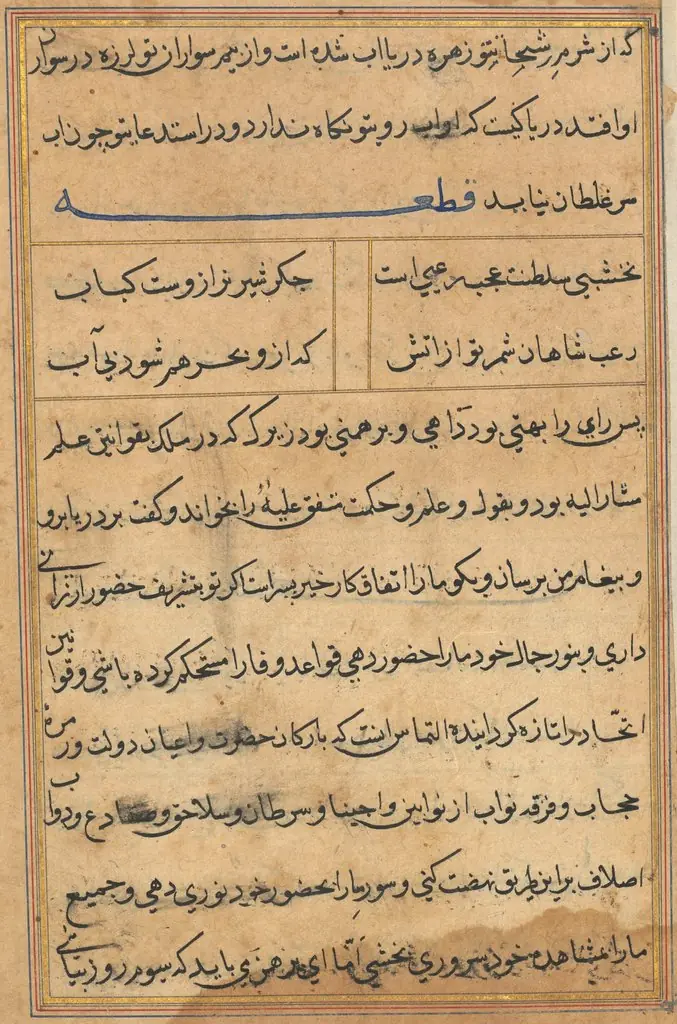 که از شرم رشحات تو زهره دریا اب شده است و از بیم سواران تو لرزه در سواران
او افتد دریا کیست که او اب روی تو نگاه ندارد و در استدعای تو چون اب
سر غلطان نیاید قطعه
نخشبی سلطنت عجب رعبی است جکر شیر نر ازوست کباب
رعب شاهان شمر تو از اتش که ازو بحر هم شود بی آب
پس رای را بهتی بود داهی و برهمنی بود زیرک که در ملک بقوانین علم
مشار الیه بود و بقول و علم و حکمت متفق علیه را بخواند و کفت بر دریا برو
و بیغام من برسان و بکو ما را اتفاق کار خیر بسر است اکر تو بتشریف حضور ارزانی
داری و بنور جمال خود ما را حضور دهی قواعد وفا را مستحکم کرده باشی و قوانین
اتحاد را تازه کردانیده التماس انست که با رکان حضرت و اعیان دولت و زمره
حجاب و فرقه نواب از نوابین و احینا و سرطان و سلاحق و ضفادع و دواب
اصلاف برین طریق نهضت کنی و سور ما را بحضور خود نوری دهی و جمیع
ما را بمشاهده خود سروری بخشی اما ای برهمن می باید که سوم روز بیائی